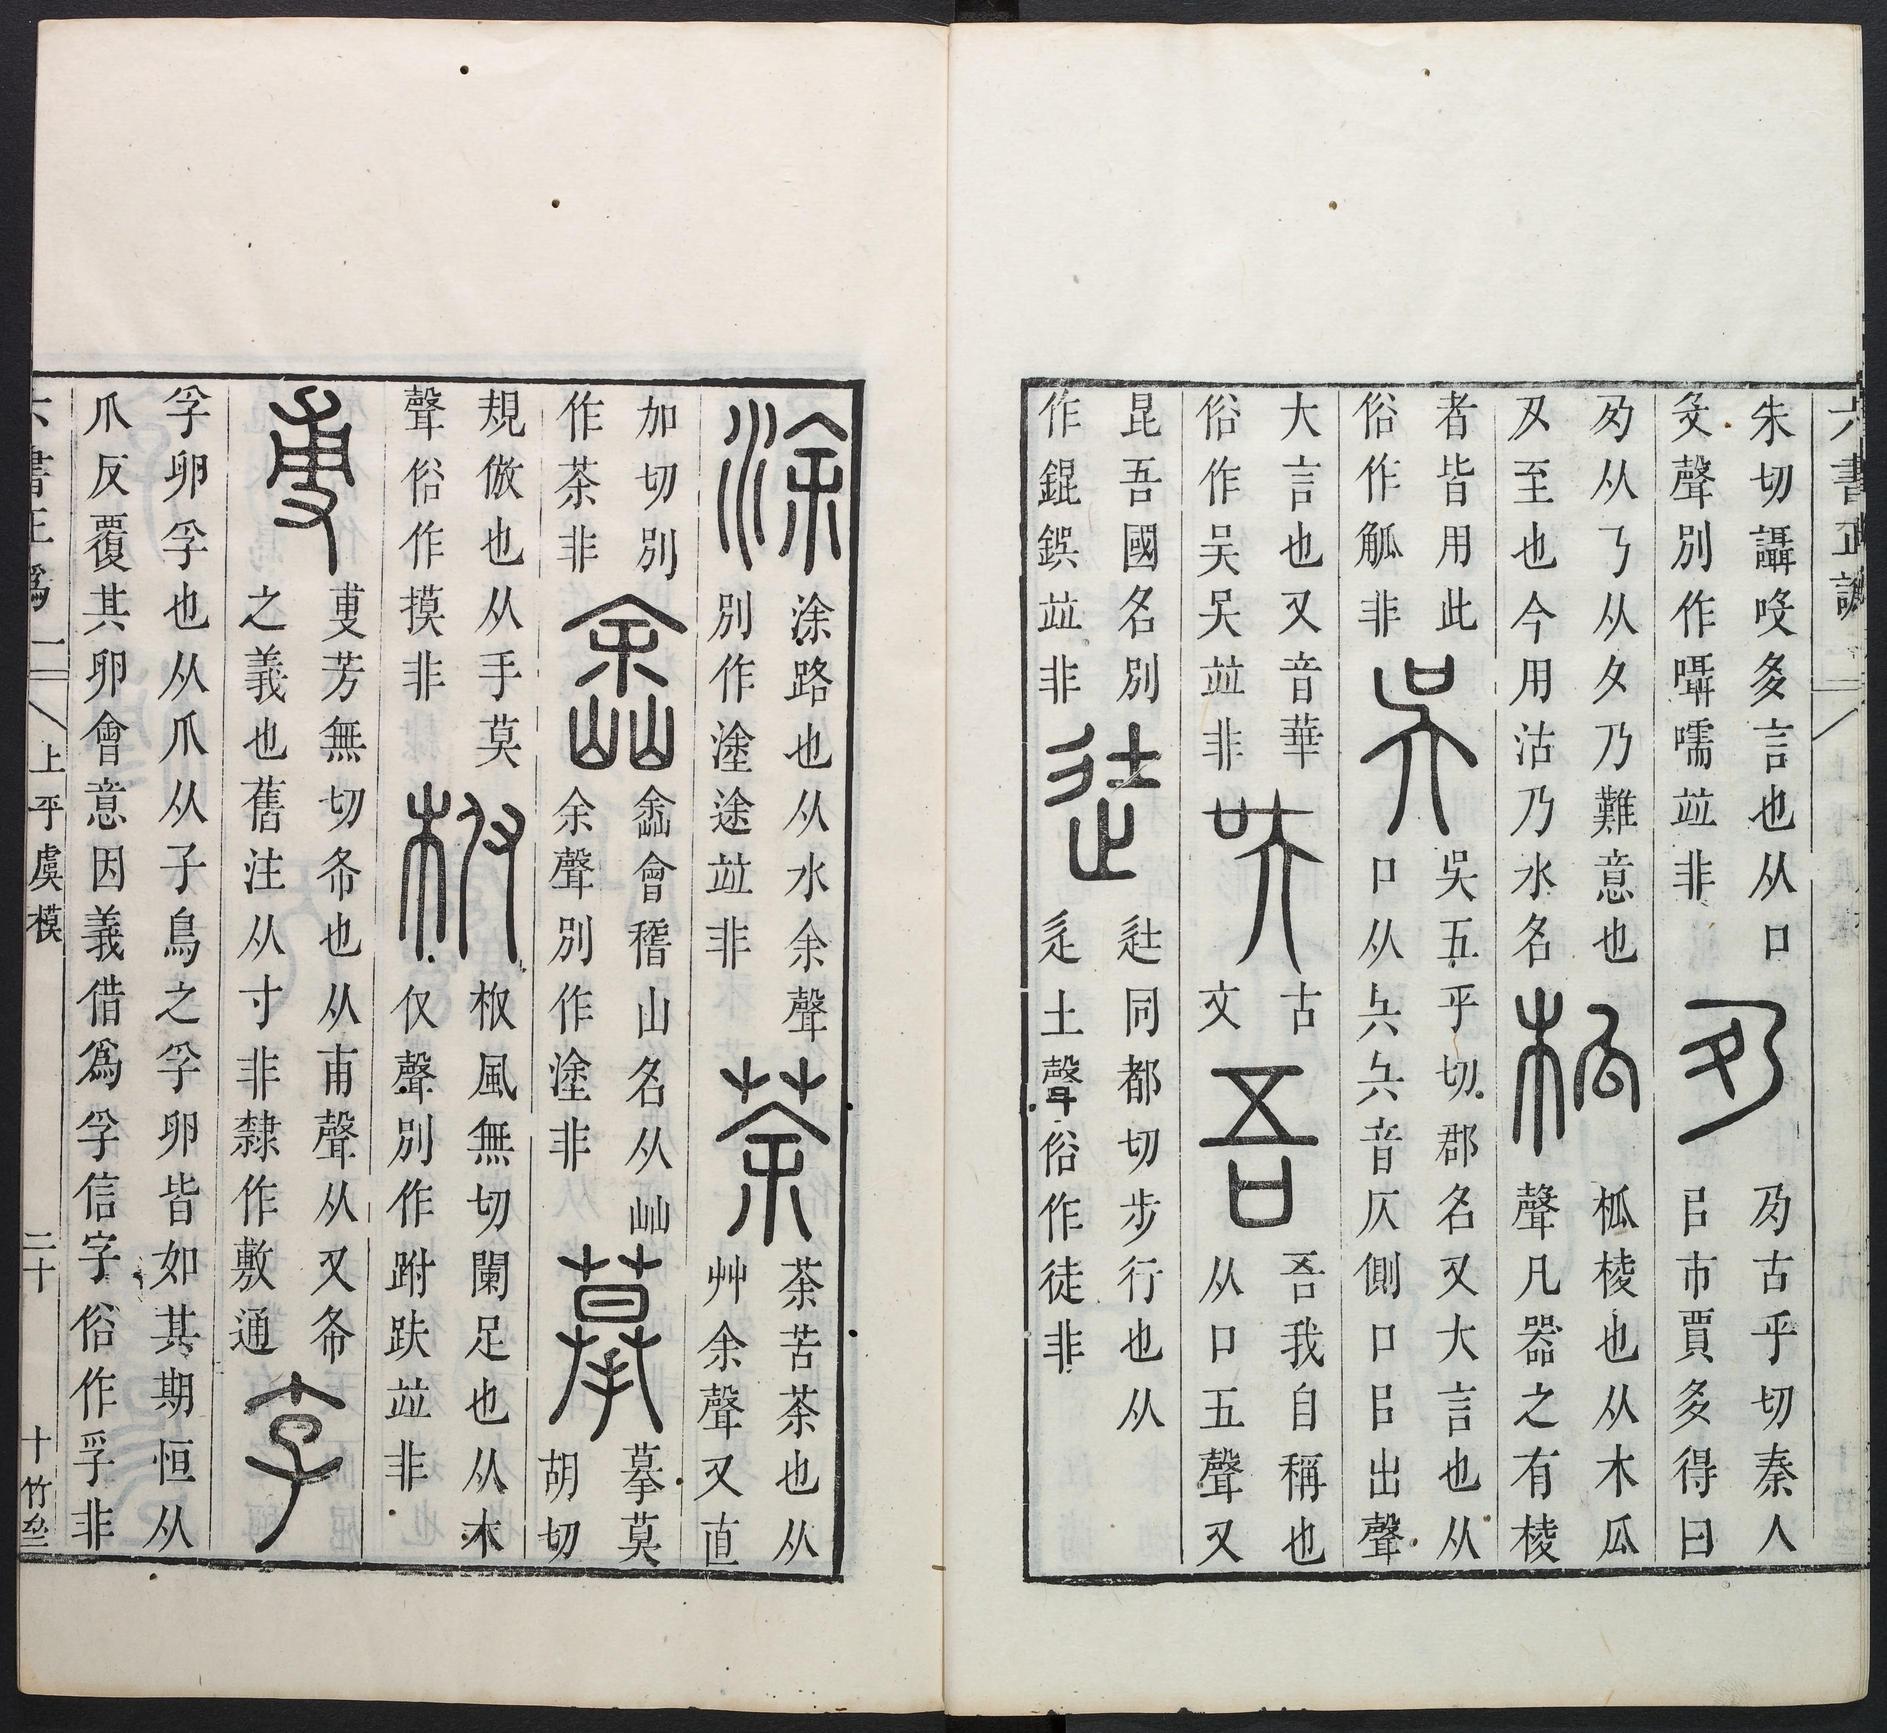 六書正譌 二
朱切讘㕭多言也从口
㕭聲別作囁嚅竝非
夃
夃古乎切秦人
㠯市賈多得曰
夃从乃从夂乃難意也
及至也今用沽乃水名
柧
柧棱也从木瓜
聲凡器之有棱
者皆用此
俗作觚非
吳
吳五乎切郡名又大言也从
口从夨夨音仄側口㠯出聲
大言也又音華
俗作吴呉竝非
古
文
吾
吾我自稱也
从口五聲又
昆吾國名別
作錕鋘竝非
辻
辻同都切步行也从
辵土聲俗作徒非
涂
涂路也从水余聲
別作塗途竝非
荼
荼苦荼也从
艸余聲又直
加切別
作茶非
嵞
嵞會稽山名从屾
余聲別作塗非
摹
摹莫
胡切
規倣也从手莫
聲俗作摸非
柎風無切闌足也从木
聲別作跗趺竝非
尃
芳無切布也从甫聲从又布
之義也舊注从寸非隸作敷通
孚
孚卵孚也从爪从子鳥之孚卵皆如其期恒从
爪反覆其卵會意因義借爲孚信字俗作孚非
六書正譌 二 上平虞模 二十 十竹齋